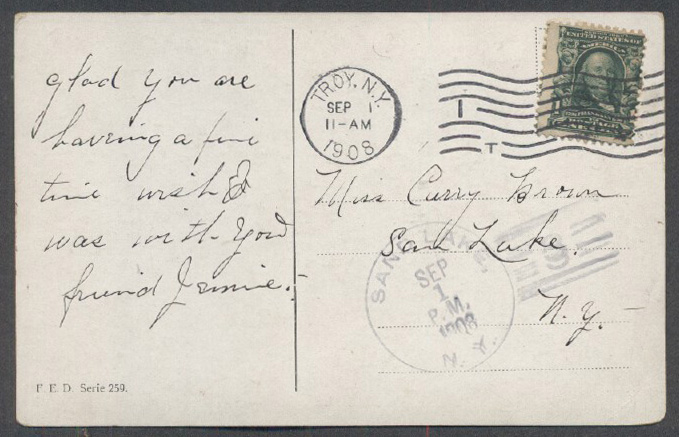 glad you are
haveing a fine
time wish I
was with you
friend Jennie.
F. E. D. Serie 259.
TROY, N.Y.
SEP 1
11-AM
1908
UNITED STATES OF
AMERICA
Miss Curry Brown
Sand Lake.
N. Y.
SAND LAKE
SEP
1
P.M.
1908
N. Y.